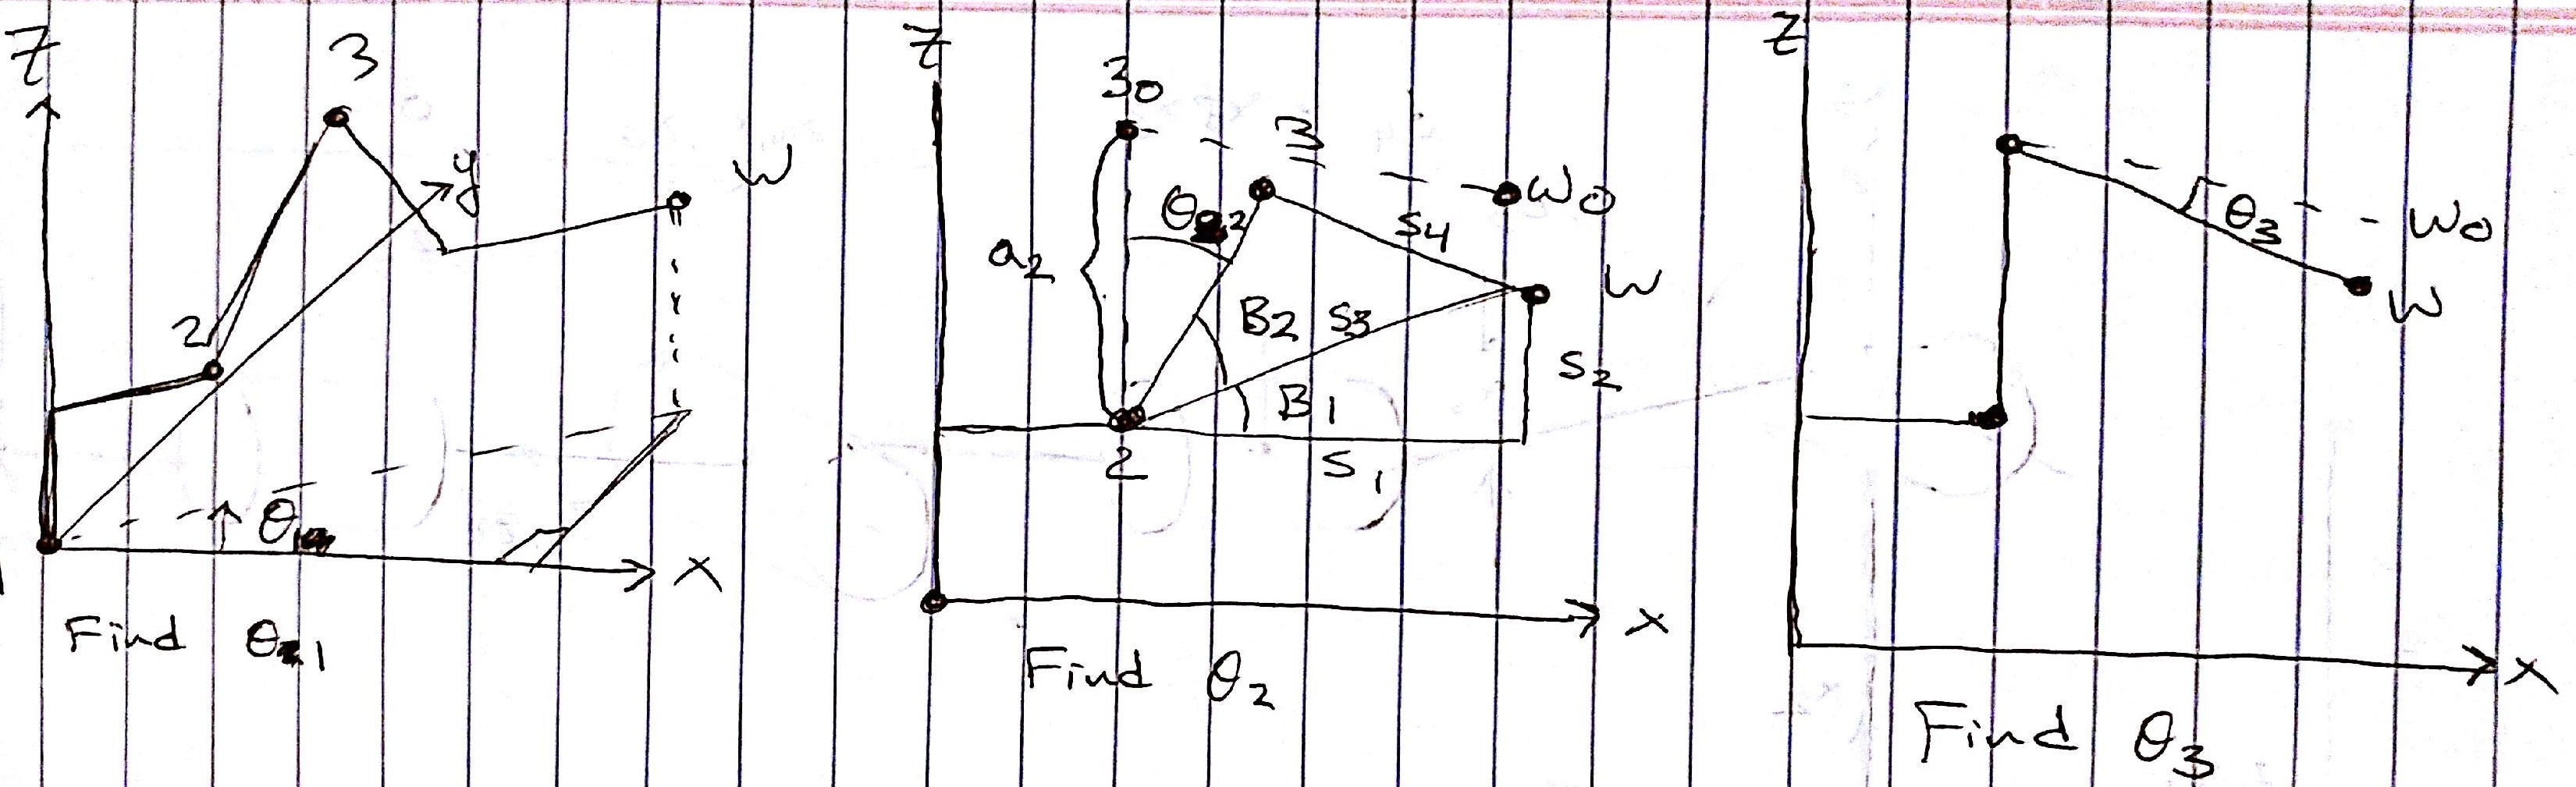 Z
3
y
W
2
θ1
X
Find θ1
Z
30
3
W0
θ2
S4
a2
W
B2
S3
S2
B1
2
S1
X
Find θ2
Z
θ3
W0
W
X
Find θ3